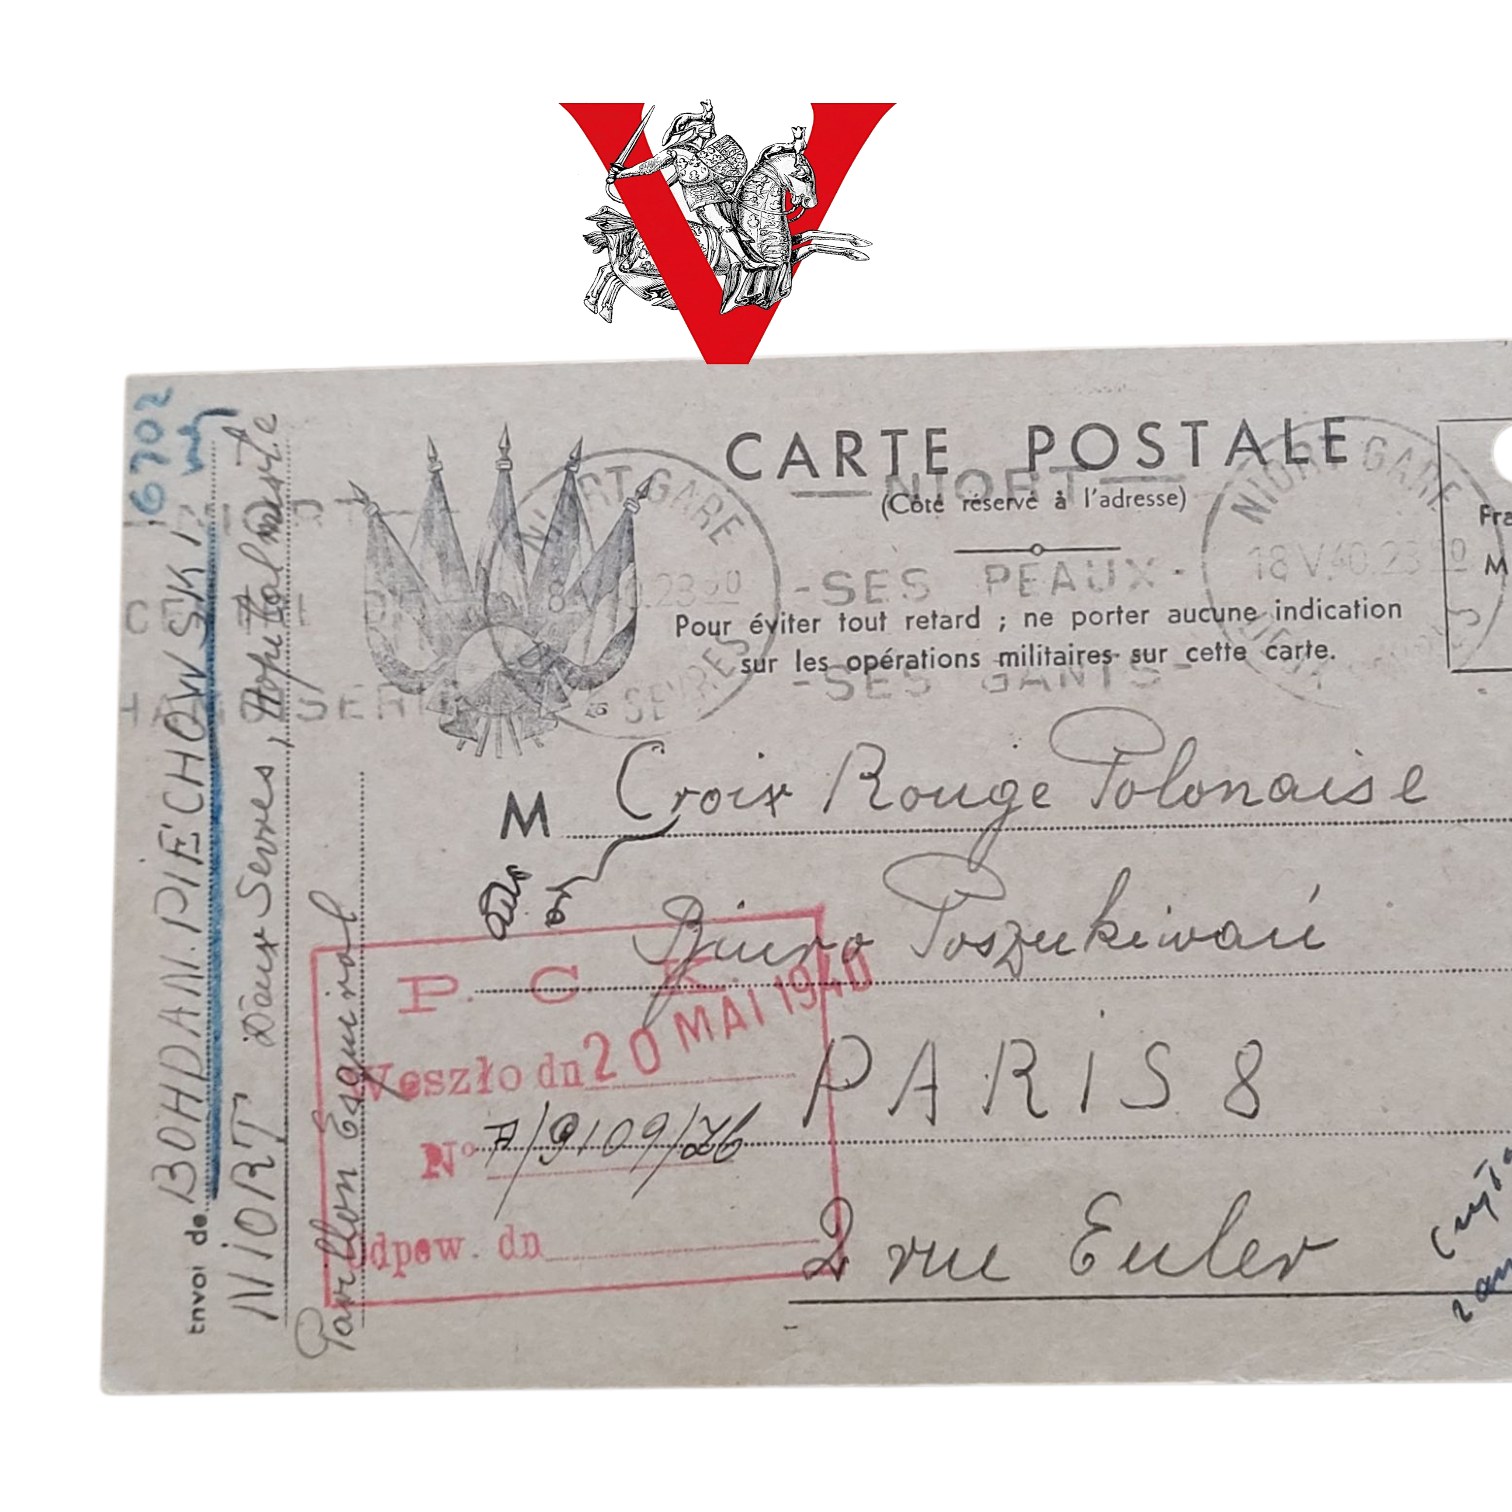 V
CARTE POSTALE
NIORT
(Côté réservé à l'adresse)
-SES PEAUX-
Pour éviter tout retard ; ne porter aucune indication
sur les opérations militaires sur cette carte.
-SES GANTS-
NIORT GARE
SEVRES
NIORT GARE
18 V.40.23
Fra
M
6702
Envoi de BOHDAN. PIECHOWSKI
NIORT Deux Sevres, Hopital mixte
Pavillon Esquirol
M Croix Rouge Polonaise
Biuro Poszukiwań
PARIS 8
2 rue Euler
P. C. K.
Weszło dn 20 MAI 1940
No 7/9109/26
Odpow. dn